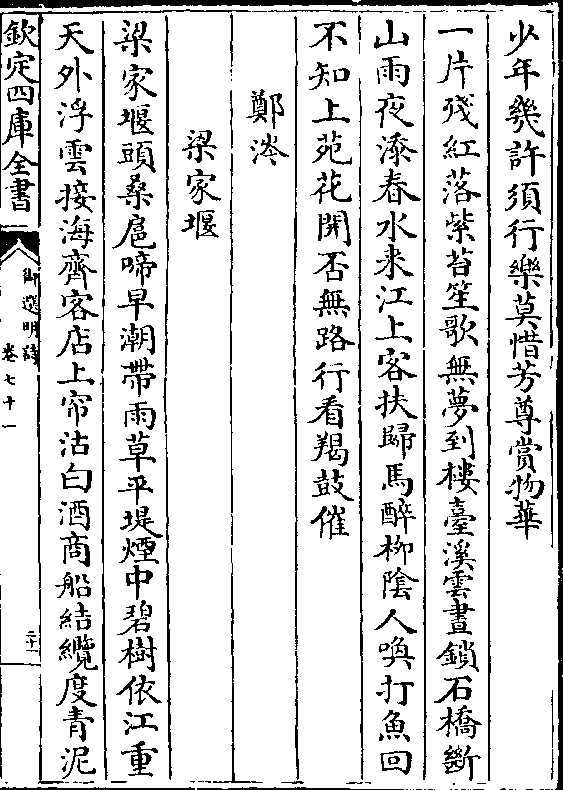 少年幾許須行樂莫惜芳尊賞物華
一片殘紅落紫苔笙歌無夢到樓臺溪雲晝鎖石橋斷
山雨夜添春水來江上客扶歸馬醉柳陰人喚打魚回
不知上苑花開否無路行看羯鼓催
鄭涔
梁家堰
梁家堰頭桑扈啼早潮帶雨草平堤煙中碧樹依江重
天外浮雲接海齊客店上帘沽白酒商船結纜度青泥
欽定四庫全書
御選明詩
卷七十一
二十